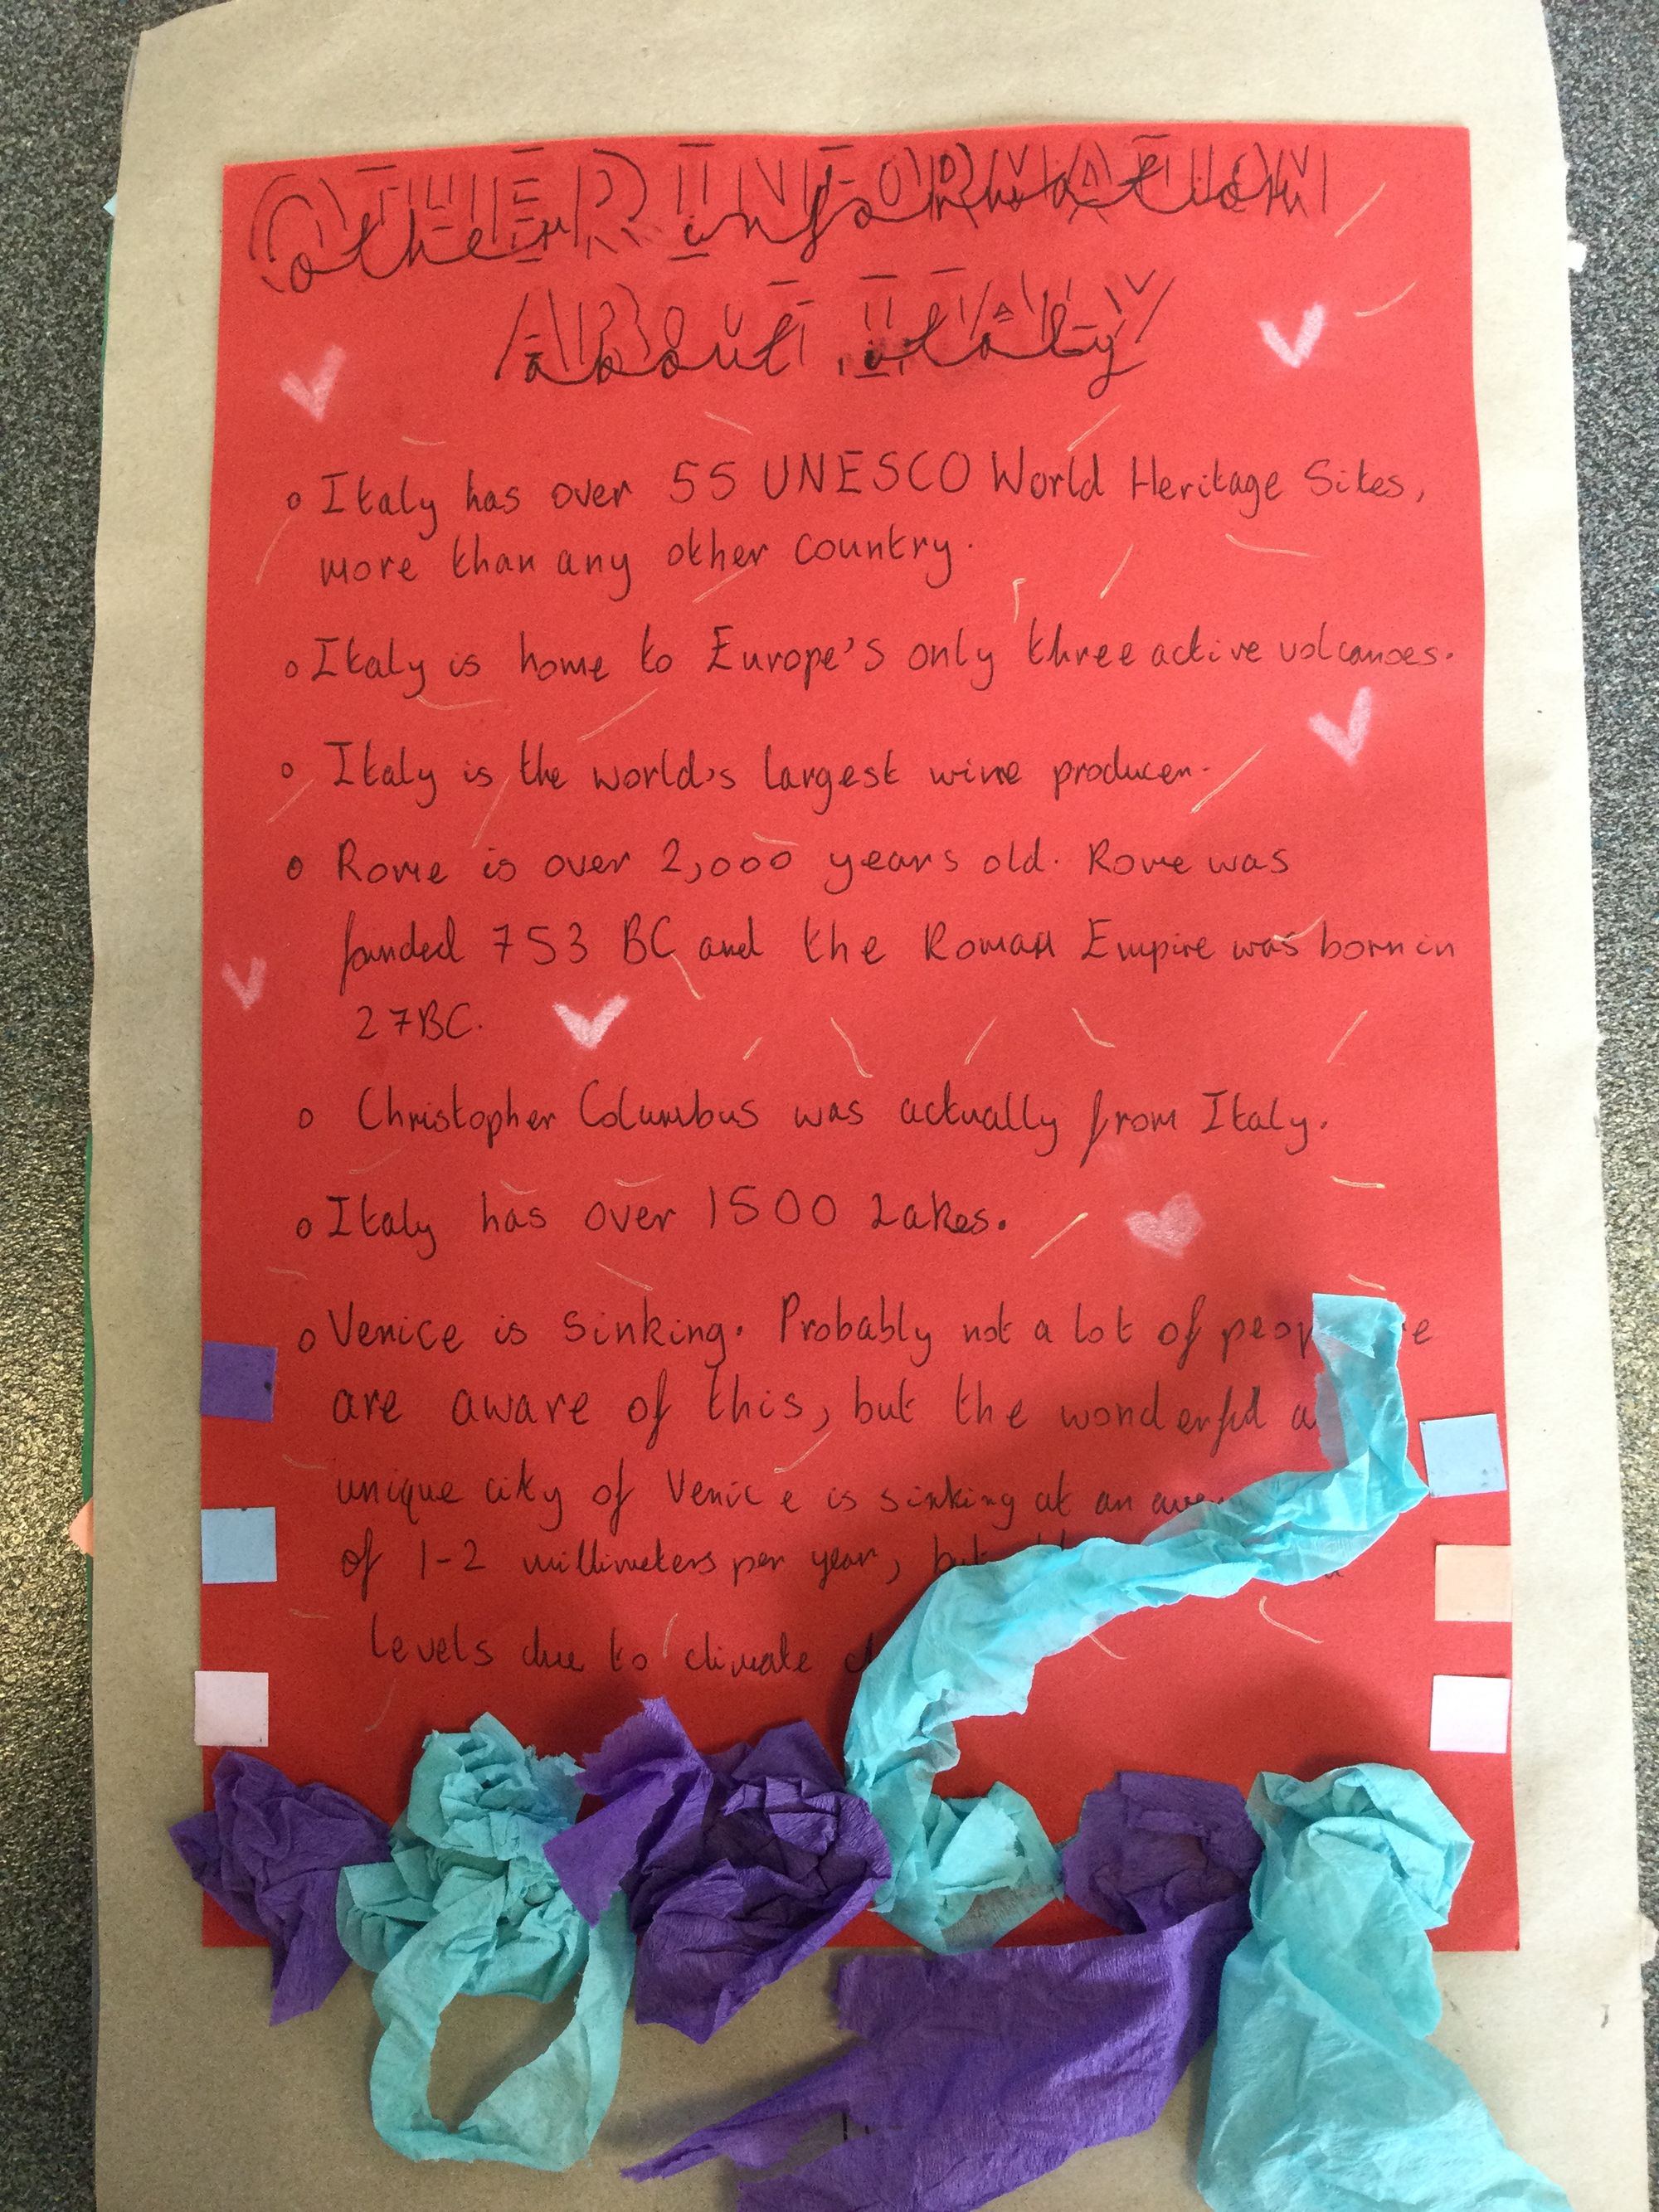 OTHER INFORMATION
other information
ABOUT ITALY
about italy
Italy has over 55 UNESCO World Heritage Sites,
more than any other country.
Italy is home to Europe's only three active volcanoes.
Italy is the world's largest wine producer.
Rome is over 2,000 years old. Rome was
funded 753 BC and the Roman Empire was born in
27BC.
Christopher Columbus was actually from Italy.
Italy has over 1500 Lakes.
Venice is sinking. Probably not a lot of
are aware of this, but the wonderful
unique city of Venice is sinking at an
of 1-2 millimeters per year,
levels due to climate